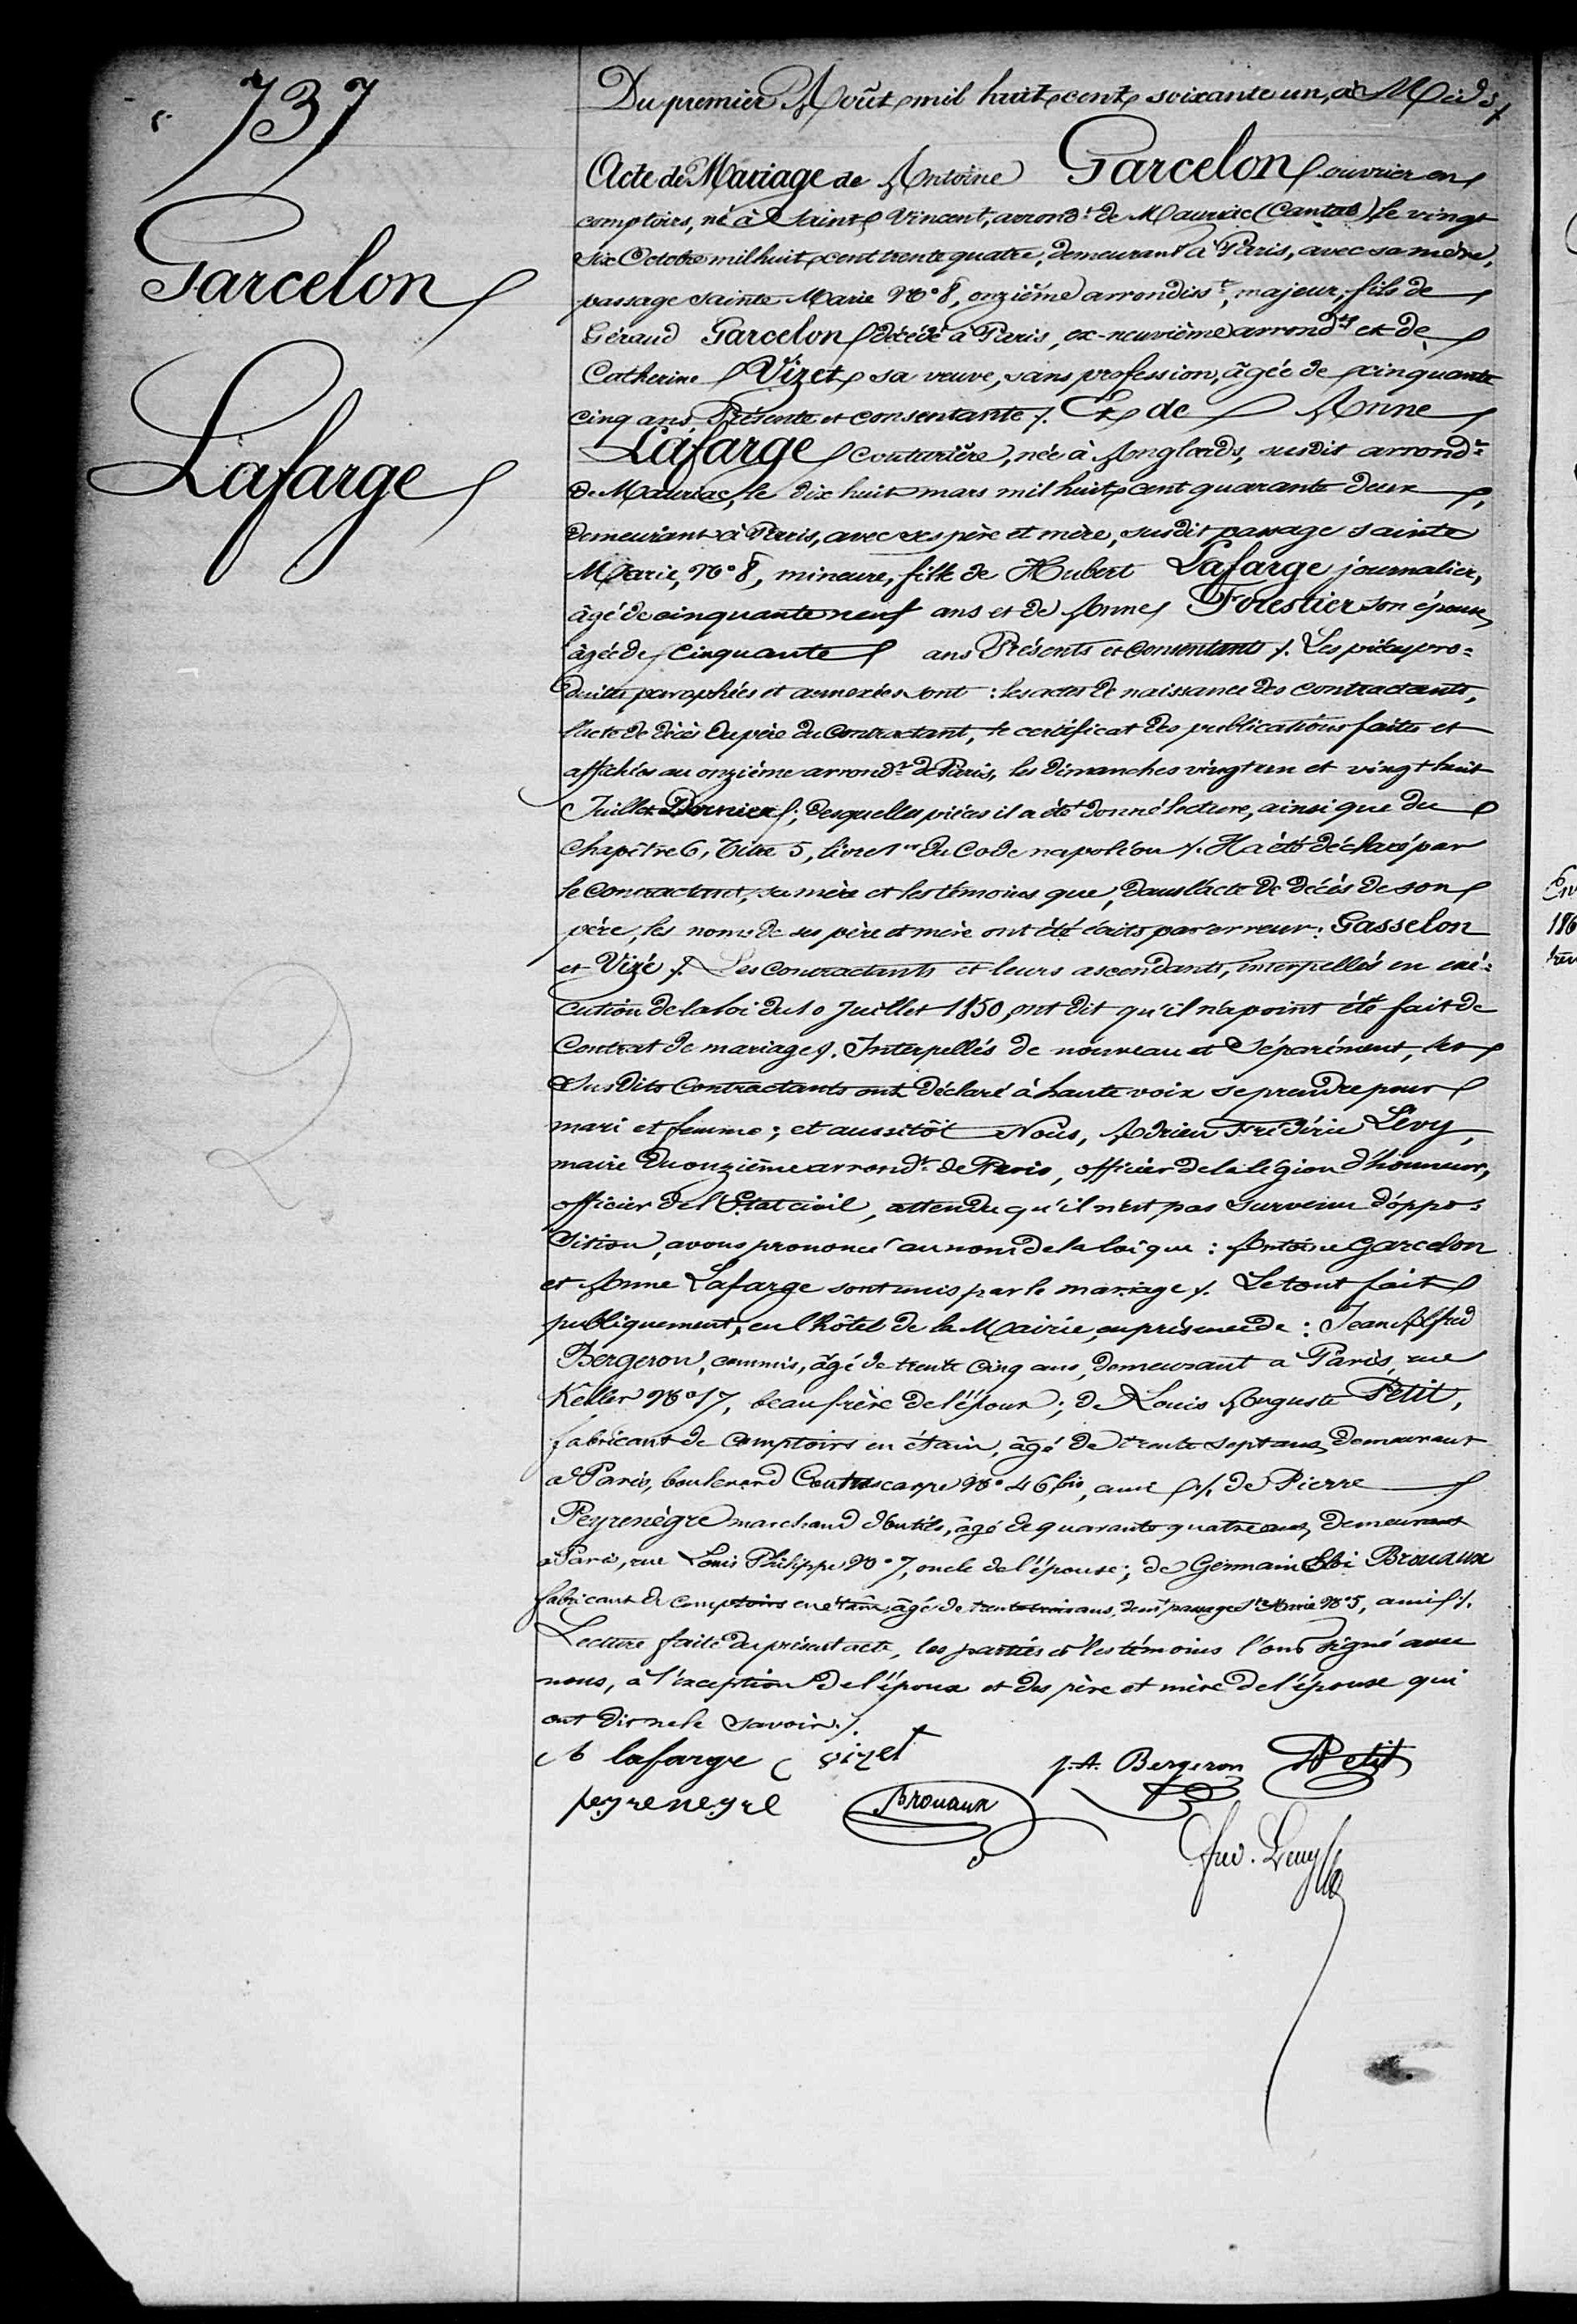 737
Garcelon
Lafarge
Du premier Août mil huit cent soixante un, à Midi
Acte de Mariage de Antoine Garcelon ouvrier en
comptoirs, né à Saint Vincent, arrond.t de Mauriac (Cantal) le vingt
six Octobre mil huit cent trente quatre, demeurant à Paris, avec sa mère,
passage Sainte Marie N° 8, onzième arrondiss.t, majeur, fils de
Géraud Garcelon décédé à Paris, ex-neuvième arrond.t et de
Catherine Vizet, sa veuve, sans profession, âgée de cinquante
cinq ans, Présente et consentante /. Et de Anne
Lafarge couturière, née à Anglards, susdit arrond.t
de Mauriac, le dix huit mars mil huit cent quarante deux,
demeurant à Paris, avec ses père et mère, susdit passage Sainte
Marie, N° 8, mineure, fille de Hubert Lafarge journalier,
âgé de cinquante neuf ans et de Anne Forestier son épouse,
âgée de cinquante ans Présents et consentants /. Les pièces pro=
duites paraphées et annexées sont : les actes de naissance des contractants,
l'acte de décès du père du Contractant, le certificat des publications faites et
affichées au onzième arrond.t de Paris, les dimanches vingt un et vingt huit
Juillet Dernier ; desquelles pièces il a été donné lecture, ainsi que du
Chapitre 6, Titre 5, livre 1er du Code napoléon /. Il a été déclaré par
le Contractant, sa mère et les témoins que, dans l'acte de décès de son
père, les noms de ses père et mère ont été écrits par erreur : Gasselon
et Vizé /. Les contractants et leurs ascendants, interpellés en exé=
cution de la loi du 10 Juillet 1850, ont dit qu'il n'a point été fait de
Contrat de mariage /. Interpellés de nouveau et Séparément, les
Susdits Contractants ont déclaré à haute voix se prendre pour
mari et femme ; et aussitôt Nous, Adrien Frédéric Lévy,
maire du onzième arrond.t de Paris, officier de la légion d'honneur,
officier de l'Etat civil, attendu qu'il n'est pas Survenu d'oppo=
sition, avons prononcé au nom de la loi que : Antoine Garcelon
et Anne Lafarge sont unis par le mariage /. Le tout fait
publiquement, en l'hôtel de la Mairie, en présence de : Jean Alfred
Bergeron, commis, âgé de trente cinq ans, demeurant à Paris, rue
Keller N° 17, beau frère de l'époux ; de Louis Auguste Petit,
fabricant de Comptoirs en étain, âgé de trente sept ans, demeurant
à Paris, boulevard Contrescarpe N° 46 bis, ami /. de Pierre
Peyrenègre marchand d'outils, âgé de quarante quatre ans, demeurant
à Paris, rue Louis Philippe N° 7, oncle de l'épouse ; de Germain Eloi Brouaux
fabricant de comptoirs en étain, âgé de trente trois ans, dem.t passage S.te Marie N° 5, ami /.
Lecture faite du présent acte, les parties et les témoins l'ont signé avec
nous, à l'exception de l'époux et des père et mère de l'épouse qui
ont dit ne le savoir /.
A lafarge c vizet J.A. Bergeron APetit
peyrenegre Brouaux
fred. Levy